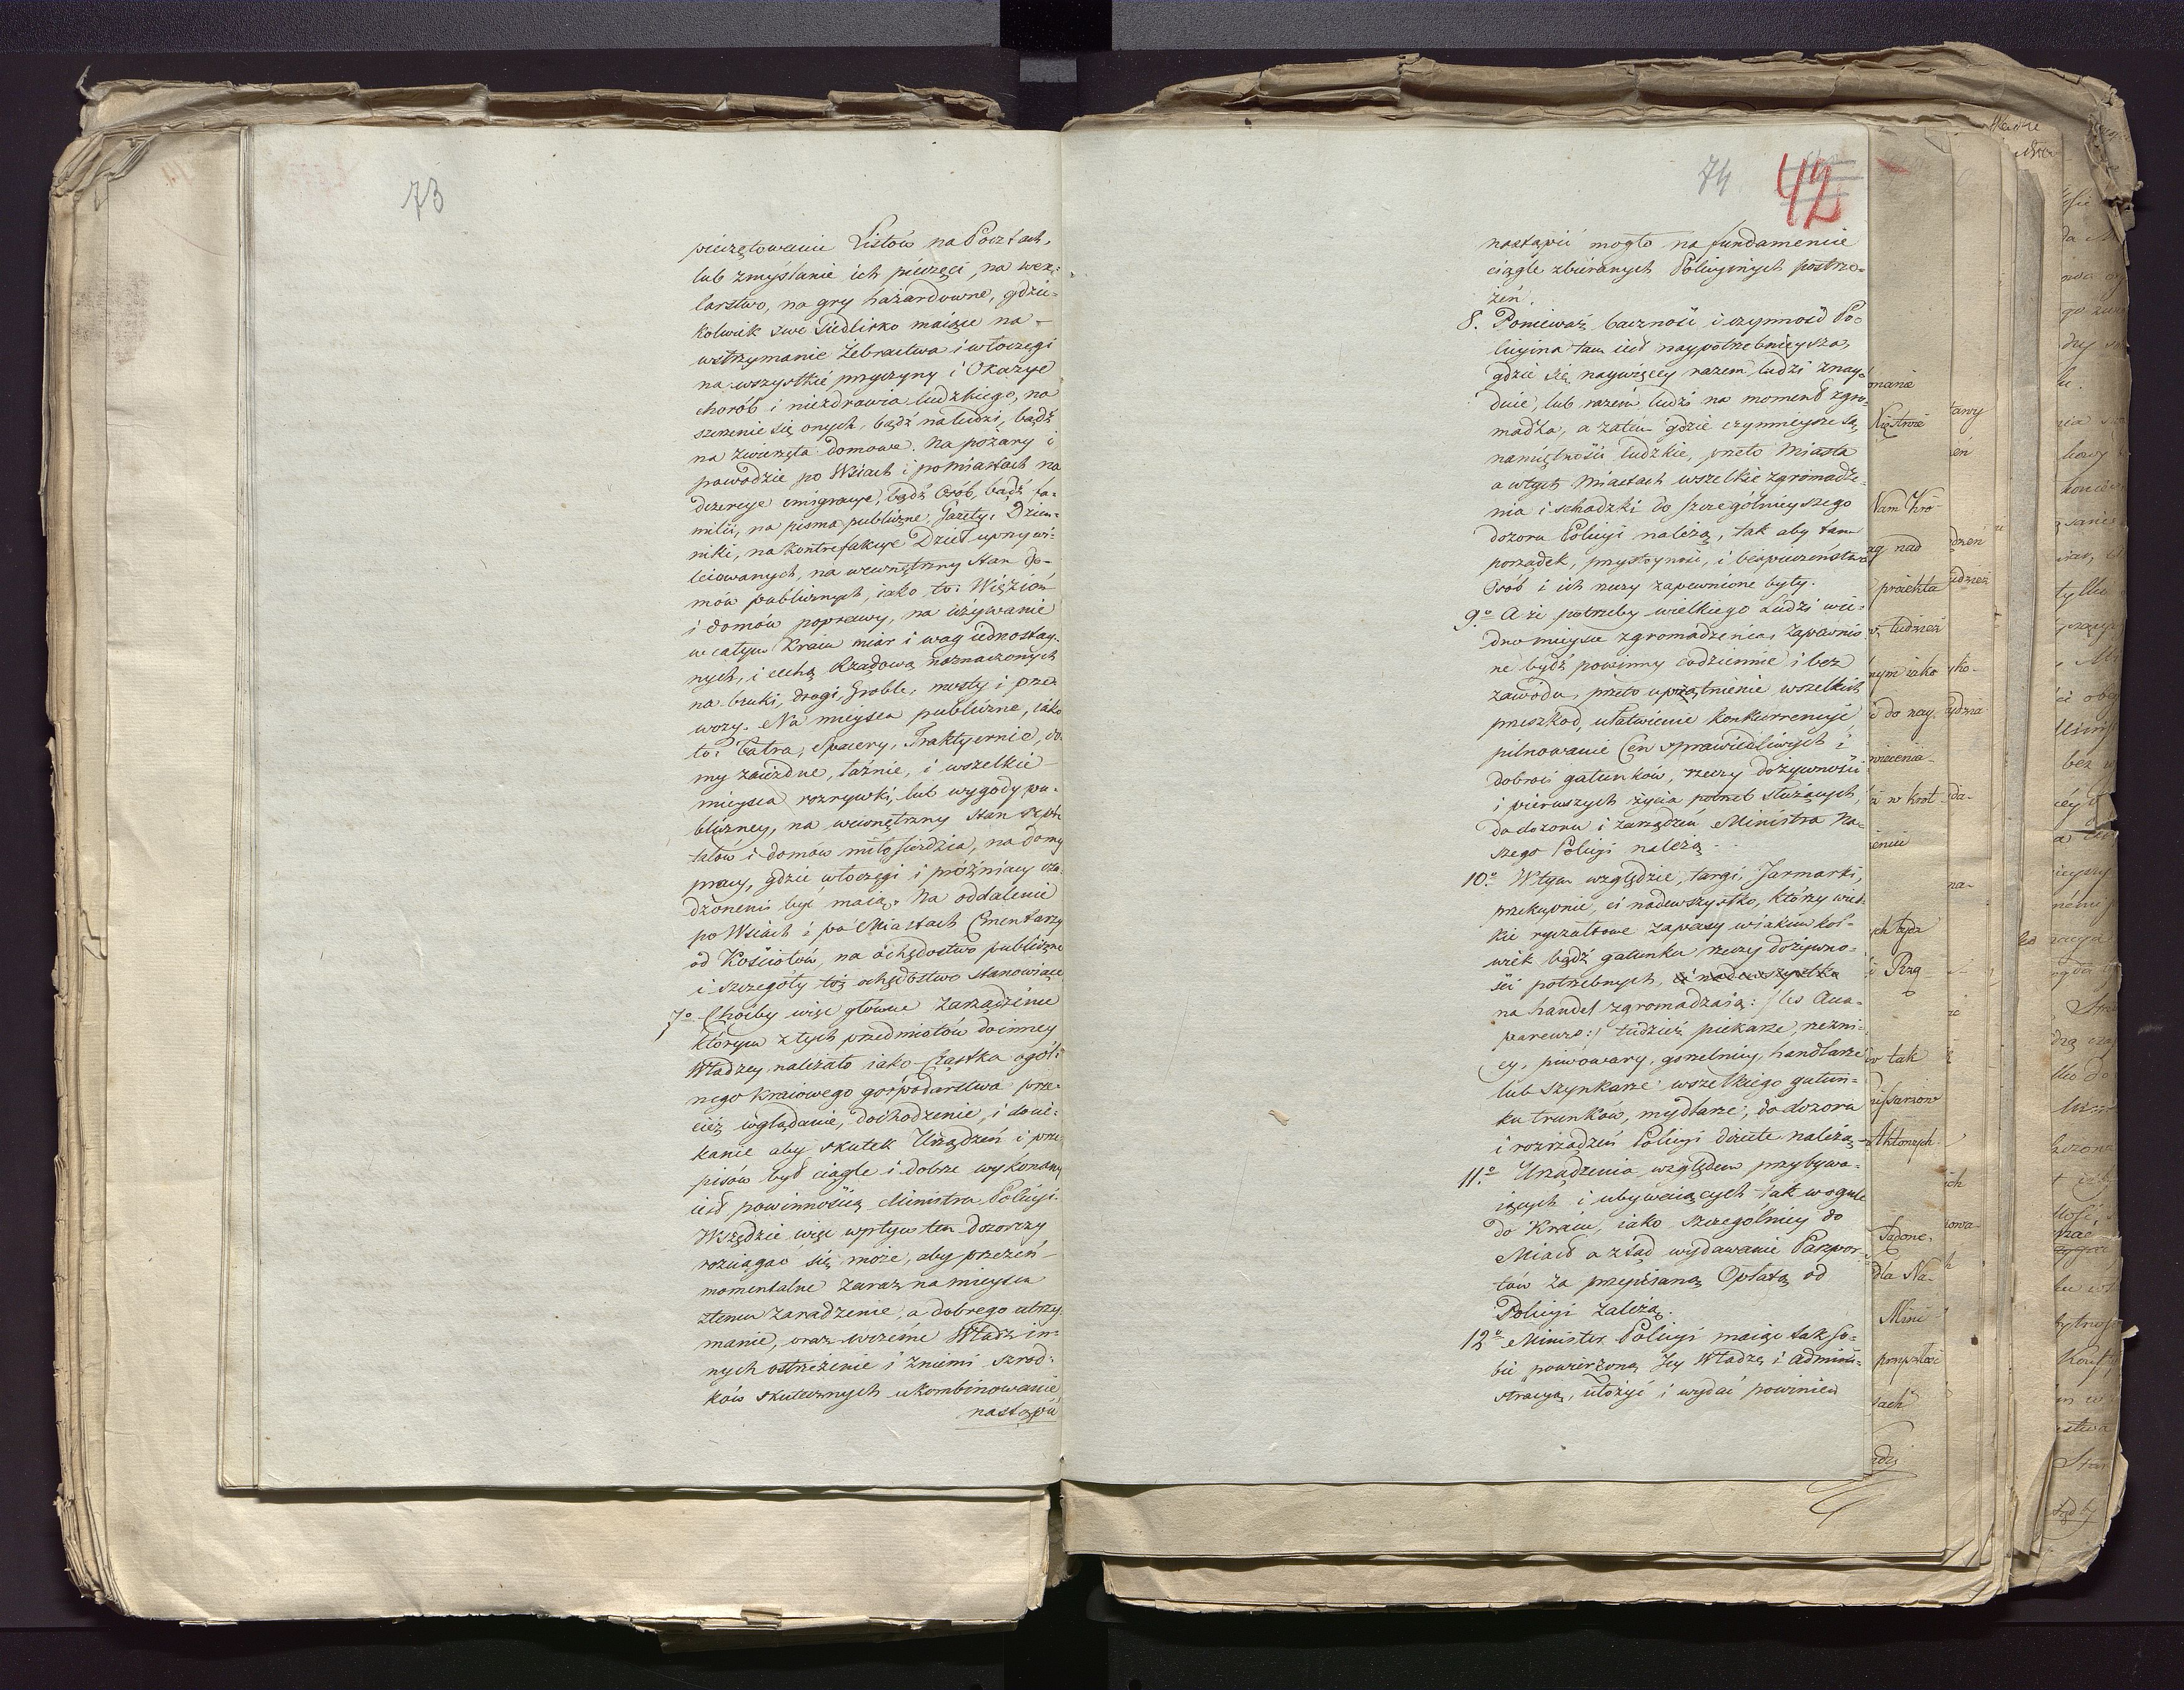 73
pieczętowanie Listów na Pocztach,
lub zmyślanie ich pieczęci, na szex:
larstwo, na gry hazardowne, gdzie-
kolwiek swe siedlisko maiące na-
wstrzymanie Żebractwa i włoczęgi
na wszystkie przyczyny i Okazye
chorób i niezdrowia ludzkiego, na
szerzenie się onych, bądź na ludzi, bądź
na zwierzęta domowe. Na pożary i
powodzie po Wsiach i po miastach na
dezercye emigracye, bądź Osób, bądź fa-
milii, na pisma publiczne, Gazety, Dzien-
niki, na kontrefakcye Dzieł uprzywi-
leiowanych, na wewnętrzny stan do-
mów publicznych, iako to: Więzień
i domów poprawy, na używanie
w całym Kraiu miar i wag iednostay-
nych, i cechą Rządową naznaczonych
na bruki, drogi, Groble, mosty i prze-
wozy. Na mieysca publiczne, iako
to: Teatra, Spacery, Traktyernie, do-
my zaiezdne, łaźnie, i wszelkie
mieysca rozrywki, lub wygody pu-
bliczney, na wewnętrzny stan szpi-
talów i domów miłosierdzia, na domy
pracy, gdzie włoczęgi i próżniacy osa-
dzonemi być maią. Na oddalenie
po Wsiach i po Miastach Cmentarzy
od Kościołów, na ochędostwo publiczne
i szczegóły toż ochędostwo stanowiące
7o Choćby więc główne zarządzenie
którym z tych przedmiotów do inney
Władzy należało iako Cząstka ogól-
nego Kraiowego gospodarstwa prze-
cież wglądanie, dochodzenie, i docie-
kanie aby skutek Urządzeń i prze-
pisów był ciągle i dobrze wykonany
iest powinnością Ministra Policyi.
Wszędzie więc wpływ ten dozorczy
rozciągać się może, aby przezeń
momentalne zaraz na mieyscu
złemu zaradzenie, a dobrego utrzy-
manie, oraz wcześne Władz in-
nych ostrzeżenie i z niemi szrod-
ków skutecznych ukombinowanie
nastąpić
74
42
nastąpić mogło na fundamencie
ciągle zbieranych Policyinych postrze-
żeń.
8. Ponieważ baczność i czynność Po-
licyina tam iest naypotrzebnieysza,
gdzie się naywięcey razem ludzi znay-
duie, lub razem ludzi na moment zgro-
madza, a zatem gdzie czynnieysze są
namiętności ludzkie, przeto Miasta
a w tych Miastach wszelkie zgromadze-
nia i schadzki do szczególnieyszego
dozoru Policyi należą, tak aby tam
porządek, przystoyność, i bespieczeństwo
Osób i ich rzeczy zapewnione były.
9o A że potrzeby wielkiego Ludzi wie-
dno mieysce zgromadzenia, zapewnio-
ne bydź powinny codziennie i bez
zawodu, przeto uprzątnienie wszelkich
przeszkod, ułatwienie konkurrencyi,
pilnowanie Cen sprawiedliwych i
dobroci gatunków, rzeczy do żywności
i pierwszych życia potrzeb służących,
do dozoru i zarządzeń Ministra Na-
szego Policyi należą.
10o W tym względzie, targi, Jarmarki,
przekupnie, ci nadewszystko, którzy wiel-
kie ryczałtowe zapasy w iakimkol-
wiek bądź gatunku rzeczy do żywno-
ści potrzebnych, ci nadewszystko
na handel zgromadzaią: /: les Acca-
pareurs :/ tudzież piekarze, rzeźni-
cy, piwowary, gorzelnicy, handlarze
lub szynkarze wszelkiego gatun-
ku trunków, mydlarze, do dozoru
i rozrządzeń Policyi ściśle należą
11o Urządzenia względem przybywa-
iących i ubywaiących tak w ogule
do Kraiu, iako szczególniey do
Miast a ztąd wydawanie Paszpor-
tów za przepisaną Opłatą od
Policyi zależą.
12o Minister Policyi maiąc tak so-
bie powierzoną Jey Władzę i admini-
stracyą, ułożyć i wydać powinien